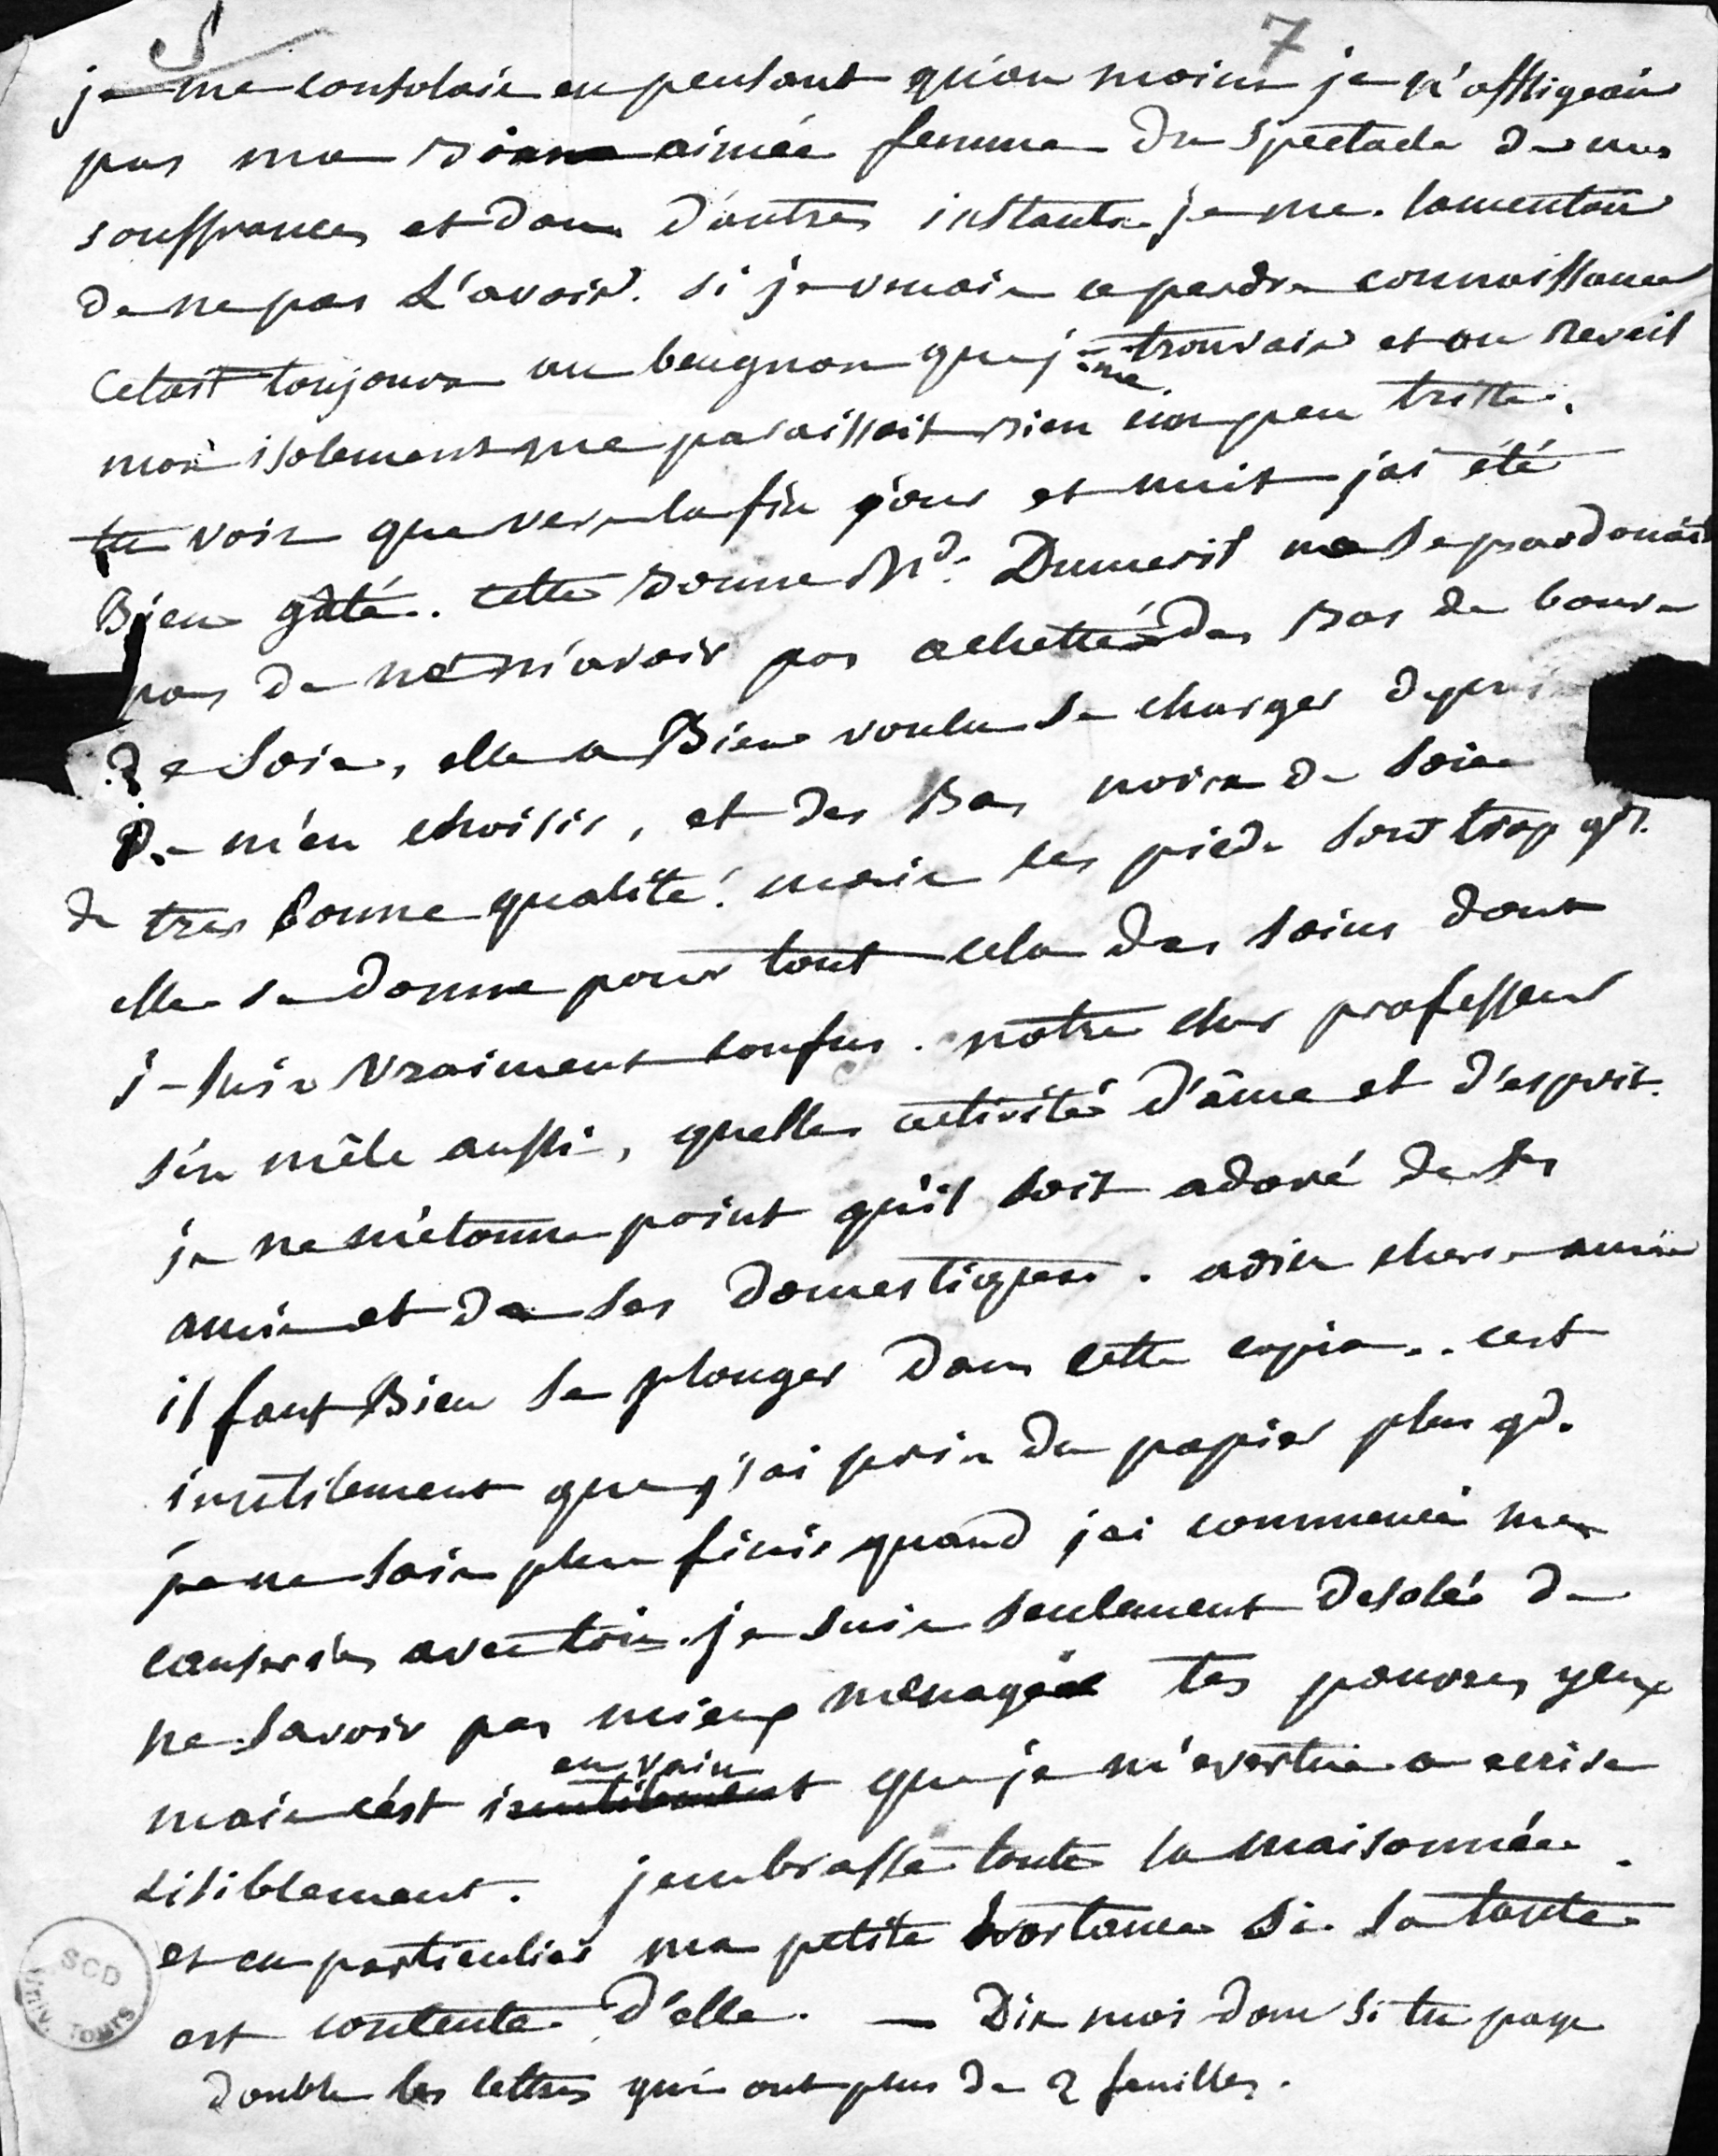 5 7
je me consolais en pensant qu'au moins je n'affligeais
pas ma aimée femme du spectacle de mes
souffrances et dans d'autres instants je me lamentais
de ne pas l'avoir. si je venais a perdre connoissance
cetait toujours au beugnon que je me trouvais et au reveil
mon isolement me paraissait bien un peu triste.
tu vois que vers la fin jour et nuit jai été
Bien gâté. cette bonne Md. Dumeril ne se pardonait
pas de ne m'avoir pas achetté des bas de boure
de soie, elle a Bien voulu se charger depuis
De m'en choisir, et des Bas noirs de soie
de tres bonne qualité. mais les pieds sont trop gds.
elle se donne pour tout cela des soins dont
je suis vraiment confus. notre cher professeur
s'en mêle aussi, quelle activité d'âme et d'esprit.
je ne m'étonne point qu'il soit adoré de ses
amis et de ses domestiques. adieu chere amie
il faut Bien se plonger dans cette copie.. cest
inutilement que j'ai pris du papier plus gd.
je ne sais plus finir quand jai commencé mes
causeries avec toi. je suis seulement desolé de
ne savoir pas mieux menager tes pauvres yeux
mais cést inutilement en vain que je m'evertue a ecrire
lisiblement. jembrasse toute la maisonnée.
et en particulier ma petite hortance si sa tante
est contente d'elle. — Dis moi donc si tu paye
double les lettres qui ont plus de 2 feuilles.
SCD
Univ. Tours